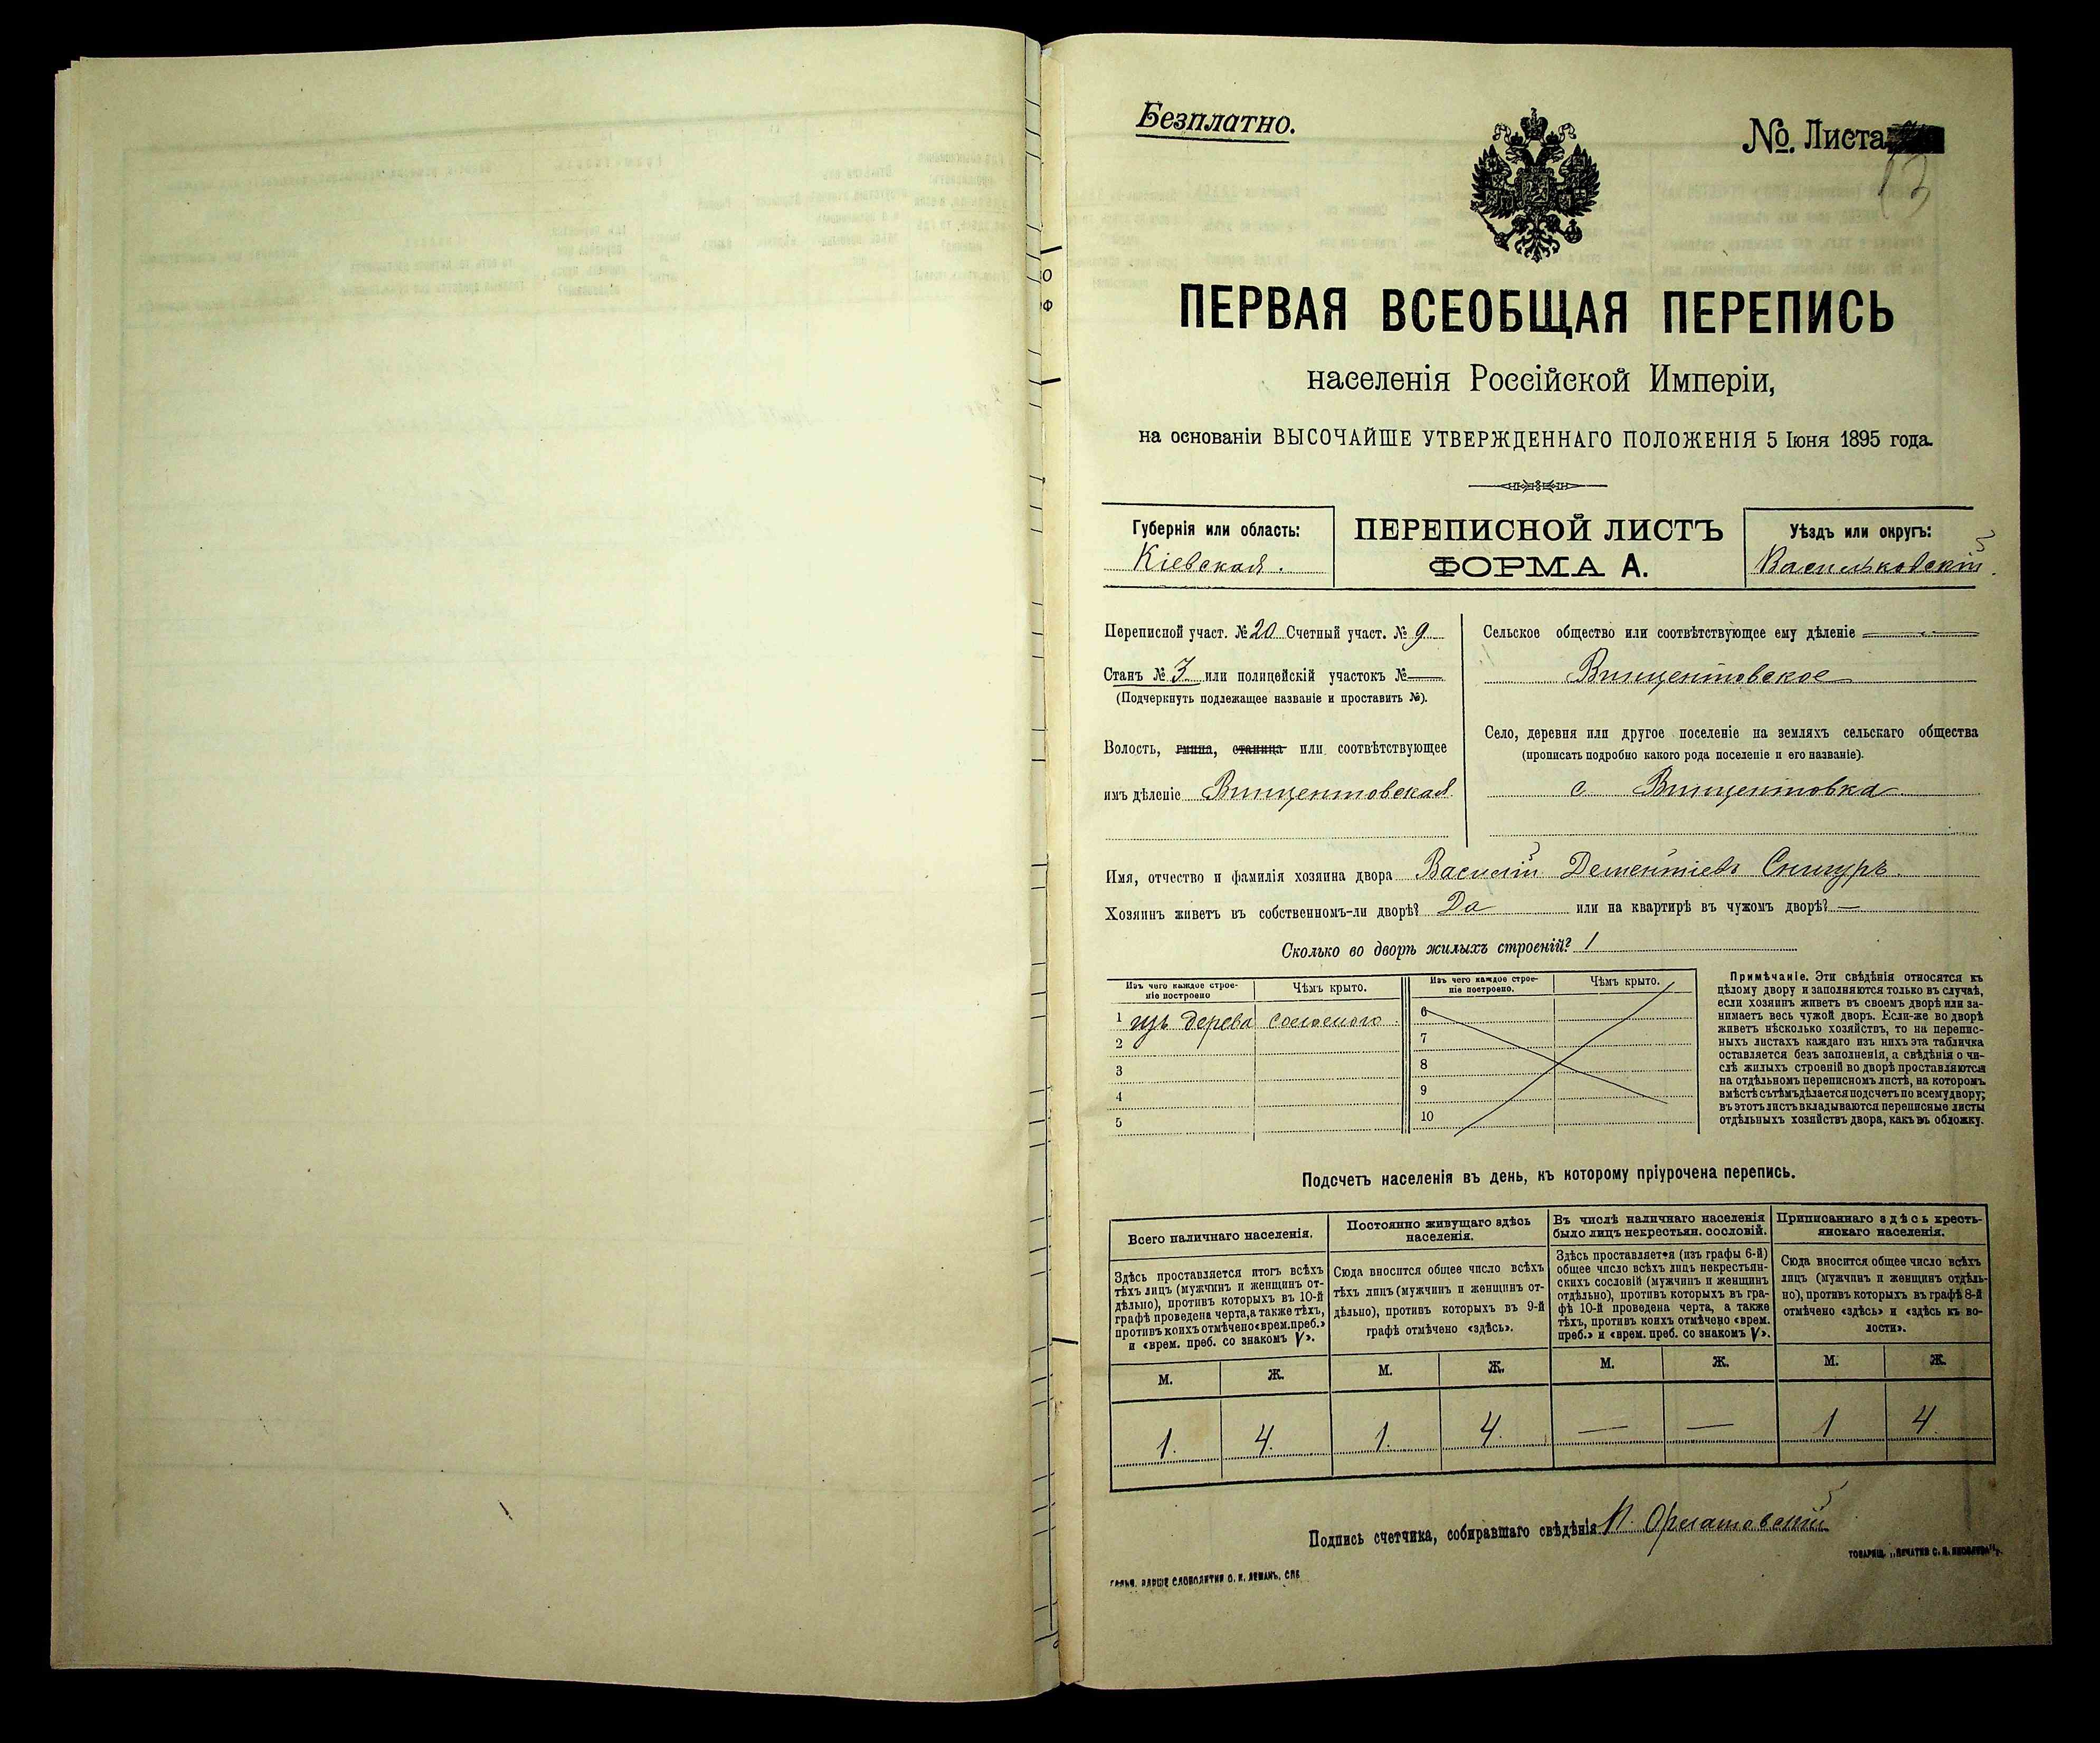 Безплатно.
№. Листа
13
ПЕРВАЯ ВСЕОБЩАЯ ПЕРЕПИСЬ
населенія Россійской Имперіи,
на основаніи ВЫСОЧАЙШЕ УТВЕРЖДЕННАГО ПОЛОЖЕНІЯ 5 Іюня 1895 года.
Губернія или область:
Кіевская.
ПЕРЕПИСНОЙ ЛИСТЪ
ФОРМА А.
Уѣздъ или округъ:
Васильковскій.
Переписной участ. № 20 Счетный участ. № 9
Станъ № 3 или полицейскій участокъ № —
(Подчеркнуть подлежащее названіе и проставить №).
Волость, гмина, станица или соотвѣтствующее
имъ дѣленіе Винцентовская
Сельское общество или соотвѣтствующее ему дѣленіе
Винцентовское
Село, деревня или другое поселеніе на земляхъ сельскаго общества
(прописать подробно какого рода поселеніе и его названіе).
с Винцентовка
Имя, отчество и фамилія хозяина двора Василій Дементіевъ Снигуръ.
Хозяинъ живетъ въ собственномъ-ли дворѣ? Да или на квартирѣ въ чужомъ дворѣ? —
Сколько во дворѣ жилыхъ строеній? 1
Изъ чего каждое строе-
ніе построено
Чѣмъ крыто.
Изъ чего каждое строе-
ніе построено.
Чѣмъ крыто.
1 изъ дерева соломою.
2
3
4
5
6
7
8
9
10
Примѣчаніе. Эти свѣдѣнія относятся къ
цѣлому двору и заполняются только въ случаѣ,
если хозяинъ живетъ въ своемъ дворѣ или за-
нимаетъ весь чужой дворъ. Если-же во дворѣ
живетъ нѣсколько хозяйствъ, то на перепис-
ныхъ листахъ каждаго изъ нихъ эта табличка
оставляется безъ заполненія, а свѣдѣнія о чи-
слѣ жилыхъ строеній во дворѣ проставляются
на отдѣльномъ переписномъ листѣ, на которомъ
вмѣстѣ съ тѣмъ дѣлается подсчетъ по всему двору;
въ этотъ листъ вкладываются переписные листы
отдѣльныхъ хозяйствъ двора, какъ въ обложку.
Подсчетъ населенія въ день, къ которому пріурочена перепись.
Всего наличнаго населенія.
Здѣсь проставляется итогъ всѣхъ
тѣхъ лицъ (мужчинъ и женщинъ от-
дѣльно), противъ которыхъ въ 10-й
графѣ проведена черта, а также тѣхъ,
противъ коихъ отмѣчено «врем. преб.»
и «врем. преб. со знакомъ V».
Постоянно живущаго здѣсь
населенія.
Сюда вносится общее число всѣхъ
тѣхъ лицъ (мужчинъ и женщинъ от-
дѣльно), противъ которыхъ въ 9-й
графѣ отмѣчено «здѣсь».
Въ числѣ наличнаго населенія
было лицъ некрестьян. сословій.
Здѣсь проставляется (изъ графы 6-й)
общее число всѣхъ лицъ некрестьян-
скихъ сословій (мужчинъ и женщинъ
отдѣльно), противъ которыхъ въ гра-
фѣ 10-й проведена черта, а также
тѣхъ, противъ коихъ отмѣчено «врем.
преб.» и «врем. преб. со знакомъ V».
Приписаннаго здѣсь кресть-
янскаго населенія.
Сюда вносится общее число всѣхъ
лицъ (мужчинъ и женщинъ отдѣль-
но), противъ которыхъ въ графѣ 8-й
отмѣчено «здѣсь» и «здѣсь въ во-
лости».
М. Ж. М. Ж. М. Ж. М. Ж.
1. 4. 1. 4. — — 1 4.
Подпись счетчика, собиравшаго свѣдѣнія